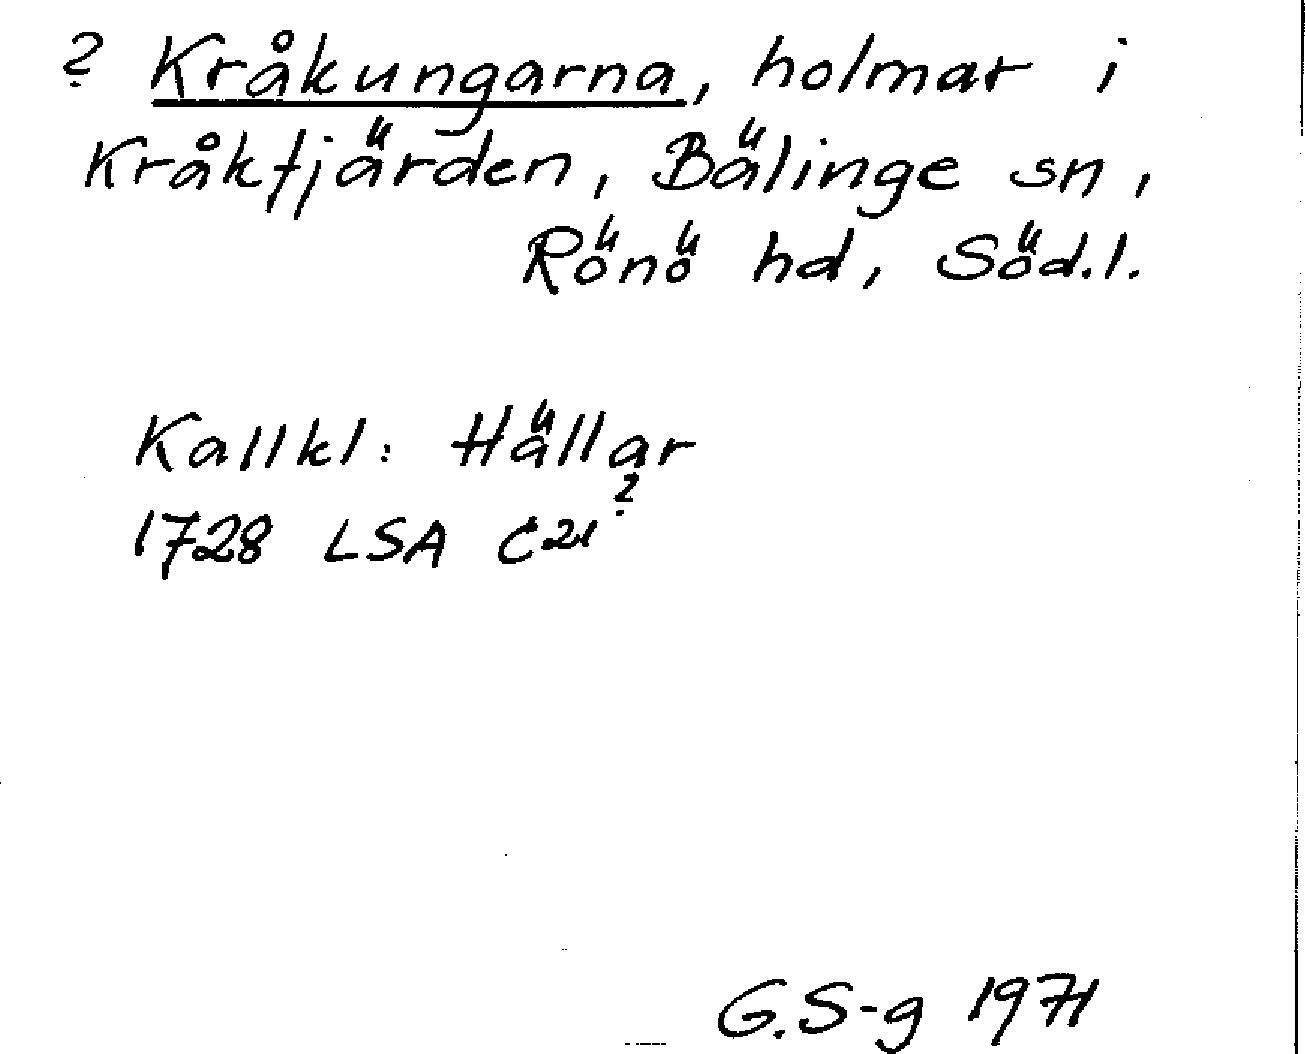 ? Kråkungarna, holmar i
Kråkfjärden, Bälinge sn,
Rönö hd, Söd.l.
Kallkl: Hällar
?
1728 LSA C21
G.S-g 1971